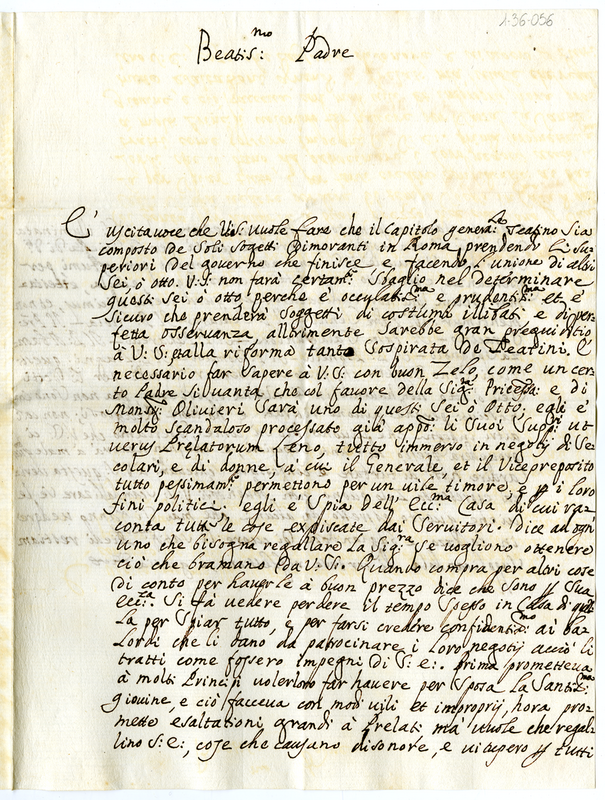 1-36-056
Beatis:mo Padre
E' uscita voce che V:S: vuole fare che il Capitolo genera:le Teatino sia
composto de soli sogetti dimoranti in Roma prendendo li su-
periori del governo che finisce e facendo l'unione di altri
sei, ò otto. V:S: non farà certam:te sbaglio nel determinare
questi sei ò otto perche è oculatis:ma e prudentis:ma et è
sicuro che prenderà soggetti di costumi illibati e di per-
fetta osservanza altrimente sarebbe gran pregiuditio
à V:S: alla riforma tanto sospirata de Teatini. E'
necessario far sapere à V:S: con buon Zelo, come un cer-
to Padre Sivuanta che col favore della Sig:ra Pricessa: e di
Monsig: Olivieri sarà uno di questi sei ò otto: egli è
molto scandaloso processato già app:o li suoi Supp:ri ut
verus Prelatorum Leno, tutto immerso in negotij di Se-
colari, e di donne, à cui il Generale, et il Vicepreposito
tutto pessimam:te permettono per un vile timore, e p i loro
fini politici. egli è Spia Dell' Ecc:ma Casa di cui rac-
conta tutte le cose expiscate dai Servitori. Dice ad ogn'
uno che bisogna regallare la Sig:ra se vogliono ottenere
ciò che bramano da V:S:. Quando compra per altri cose
di conto per haverle à buon prezzo dice che sono p Sua
Ecc:za. Si fà vedere perdere il tempo spesso in Casa di quel-
la per spiar tutto, e per farsi credere confidentis:mo ai ba-
lordi che li dano da patrocinare i loro negotij acciò li
tratti come fossero impegni di S: E:. prima prometteva
à molti Principi volerloro far havere per sposa la Santis:ma
giovine, e ciò faceva con modi vili et improprij, hora pro-
mette esaltationi grandi à Prelati mà vuole che regal-
lino S: E:, cose che causano disonore, e vitupero p tutti